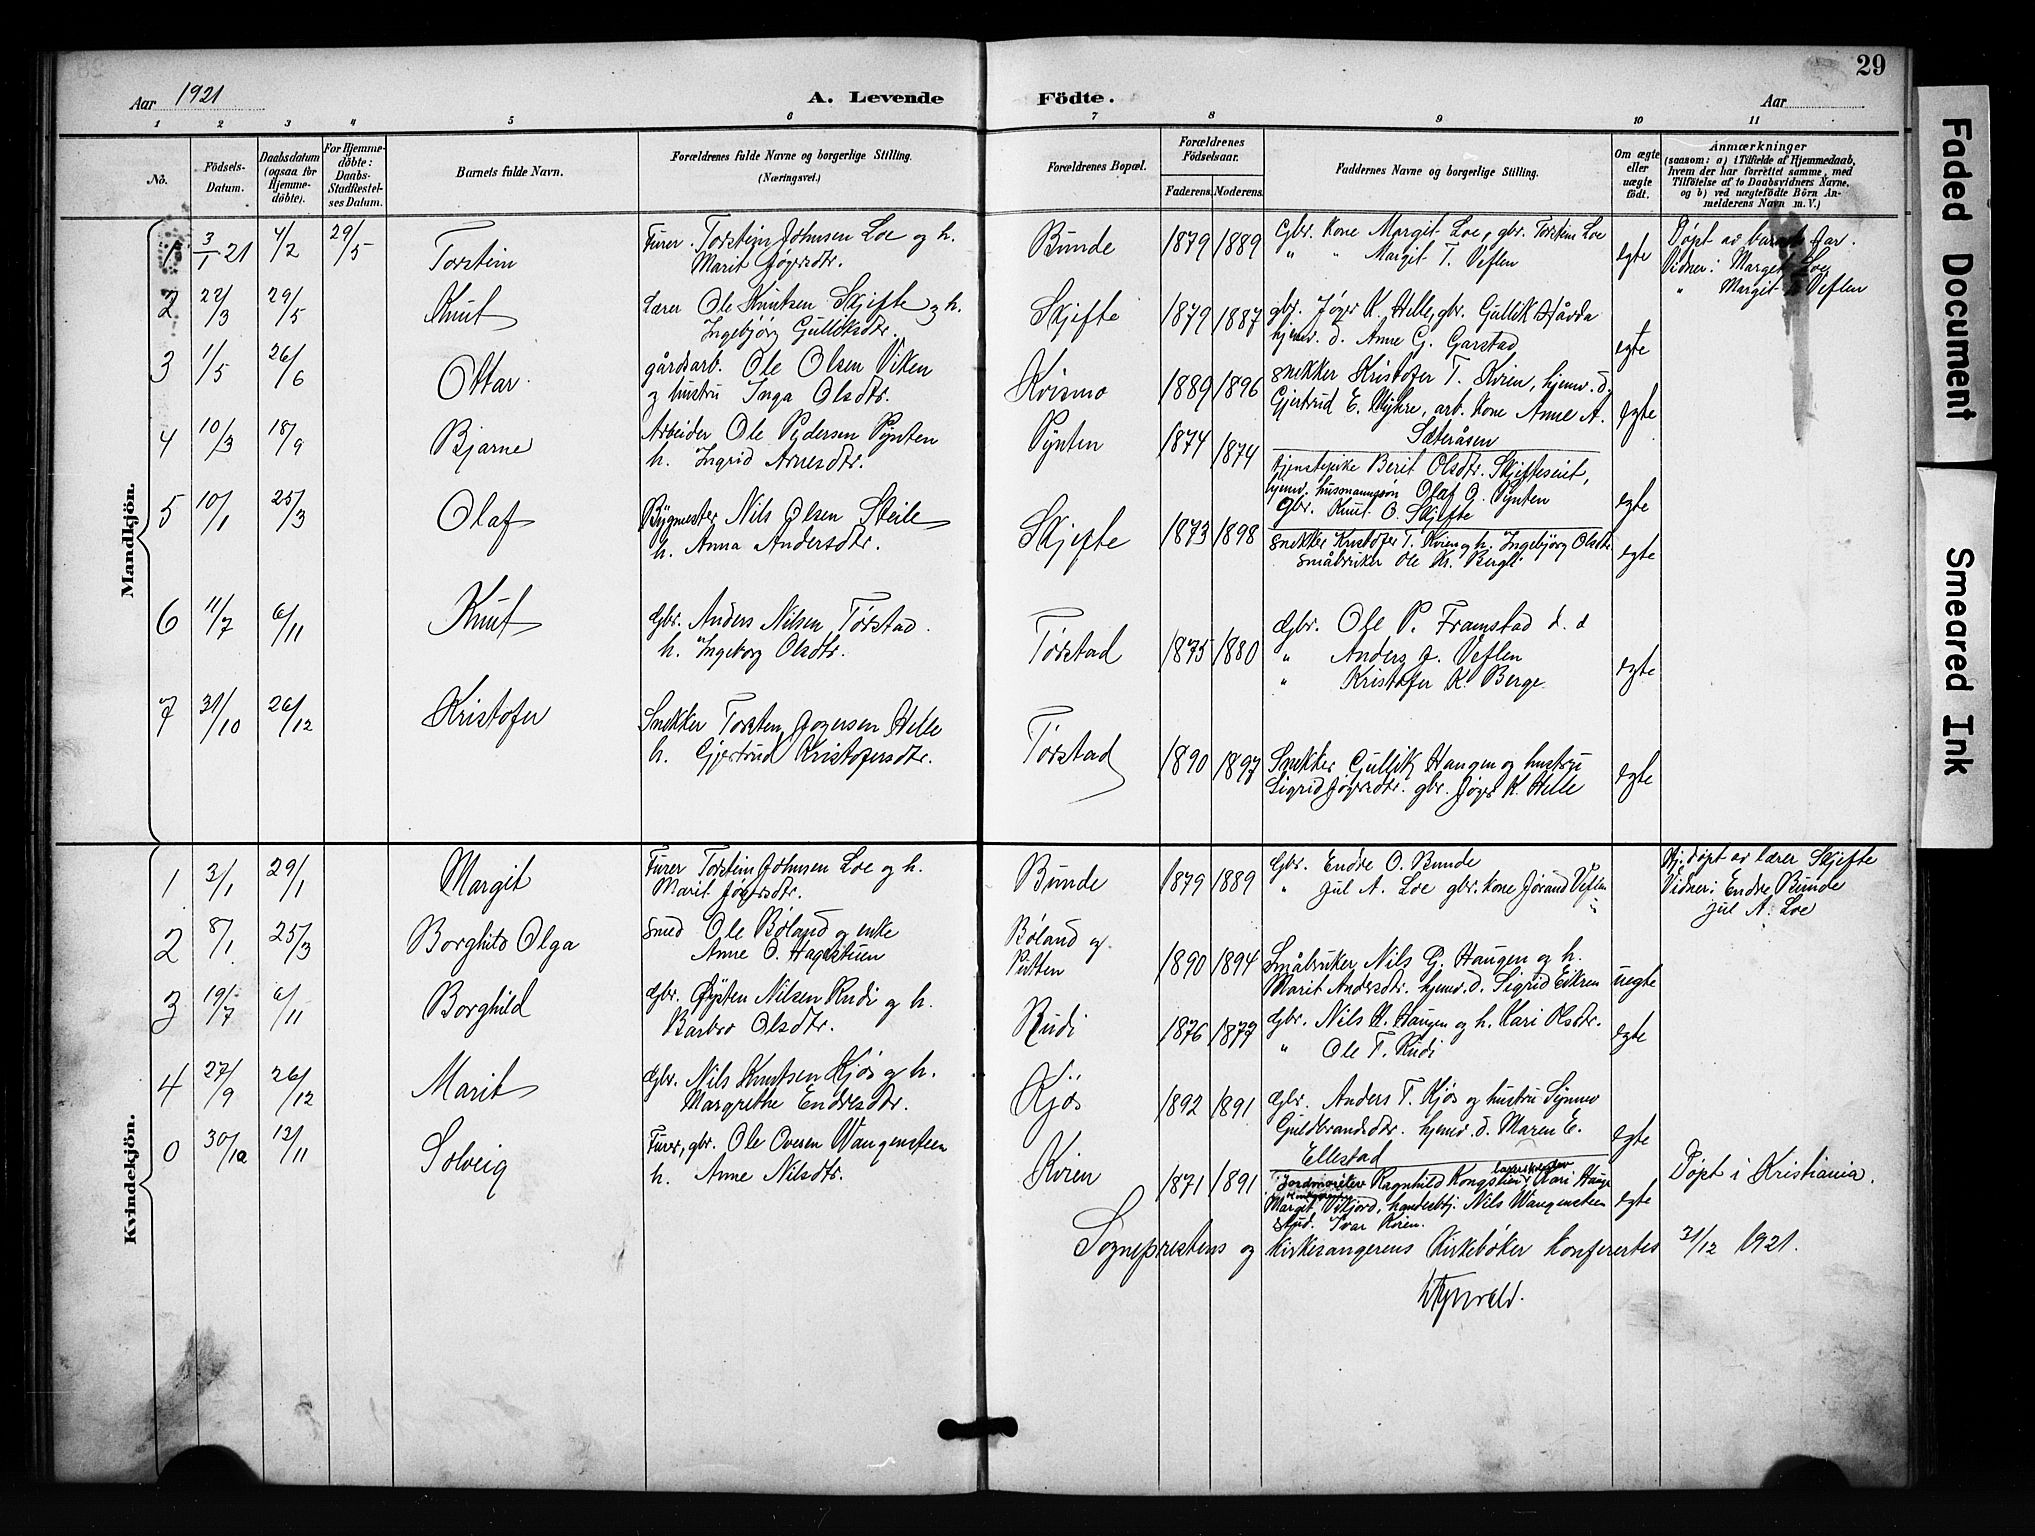 29
Aar 1921
A. Levende Födte.
Aar
1 2 3 4 5 6 7 8 9 10 11
No.
Födsels-Datum.
Daabsdatum (ogsaa for Hjemme-döbte).
For Hjemme-döbte: Daabs-Stadfæstel-ses Datum.
Barnets fulde Navn.
Forældrenes fulde Navne og borgerlige Stilling.
(Næringsvei.)
Forældrenes Bopæl.
Forældrenes Födselsaar.
Faderens. Moderens.
Faddernes Navne og borgerlige Stilling.
Om ægte eller uægte födt.
Anmærkninger
(saasom: a) i Tilfælde af Hjemmedaab, hvem der har forrettet samme, med Tilföielse af to Daabsvidners Navne, og b) ved uægtefödte Börn An-melderens Navn m. V.)
Mandkjön.
3/1 21 4/2 29/5 Torstein
Furer Torstein Johnsen Loe og h.
Marit Jøgersdtr.
Bunde 1879 1889
Gbr. Kone Margit Loe, gbr. Torstein Loe
" " Margit T. Veflen
egte
Døpt av barnets far.
Vidner: Marget Loe
" Margit T. Veflen
2 22/3 29/5 Knut
Lærer Ole Knutsen Skjefte og h.
Ingebjørg Gulliksdtr.
Skjefte 1879 1887
gbr. Jøger K. Helle, gbr. Gullik Håvda
hjemv. d. Anne G. Garstad
egte
3 1/5 26/6 Ottar
gårdsarb. Ole Olsen Viken
og hustru Inga Olsdtr.
Kvismo 1889 1896
snekker Kristofer T. Kvien, hjemv. d.
Gjertrud E. Myhre, arb. Kone Anne A.
Sæteråsen
egte
4 10/3 18/9 Bjarne
Arbeider Ole Pedersen Pynten
h. Ingrid Arnesdtr.
Pynten 1874 1874
tjenstepike Berit Olsdtr. Skjefteseiet,
hjemv. husmannssøn Olaf O. Pynten
Gbr. Knut O. Skjefte
egte
5 10/1 25/3 Olaf
Bygmester Nils Olsen Steile
h. Anna Andersdtr.
Skjefte 1873 1898
Snekker Kristofer T. Kvien og h. Ingebjørg Olsdtr.
småbruker Ole Kr. Berge
egte
6 11/7 6/11 Knut
Gbr. Anders Nilsen Tørstad.
h. Ingeborg Olsdtr.
Tørstad 1875 1880
Gbr. Ole P. Framstad d. d
" Anders J. Veflen
" Kristofer K. Berge
egte
7 31/10 26/12 Kristofer
Snekker Torsten Jøgersen Helle
h. Gjertrud Kristofersdtr.
Tørstad 1890 1897
Snekker Gullik Haugen og hustru
Sigrid Jøgersdtr. gbr. Jøger K. Helle
egte
Kvindekjön.
1 3/1 29/1 Margit
Furer Torstein Johnsen Loe og h.
Marit Jøgersdtr.
Bunde 1879 1889
Gbr. Endre O. Bunde
" Jul A. Loe gbr. kone Jørand Veflen
Hj. døpt av lærer Skjefte
Vidner: Endre Bunde
Jul A. Loe
2 8/1 25/3 Borghild Olga
Smed Ole Bøland og enke
Anne O. Hagestuen
Bøland og
1890 1894
Småbruker Nils G. Haugen og h.
Marit Andersdtr. hjemv. d. Sigrid Eikren
uegte
3 19/7 6/11 Borghild
Gbr. Øysten Nilsen Rudi og h.
Barbro Olsdtr.
Rudi 1876 1877
Gbr. Nils H. Haugen og h. Kari Olsdtr.
" Ole T. Rudi
egte
4 27/9 26/12 Marit
Gbr. Nils Knutsen Kjøs og h.
Margrethe Endresdtr.
Kjøs 1892 1891
Gbr. Anders T. Kjøs og hustru Synnev
Guldbrandsdtr. hjemv. d. Maren E.
Ellestad
egte
0 30/10 12/11 Solveig
Furer, gbr. Ole Oversen Wangensteen
h. Anne Nilsdtr.
Kvien 1871 1891
Jordmorelev Ragnhild Kongslien, Kari Hauge
Margit Vikjord, handelsbtj. Nils Wangensteen
stud. Ivar Kvien.
egte
Døpt i Kristiania.
Sogneprestens og Kirkesangerens Kirkebøker konferertes 31/12 1921.
Faded Document
Smeared Ink